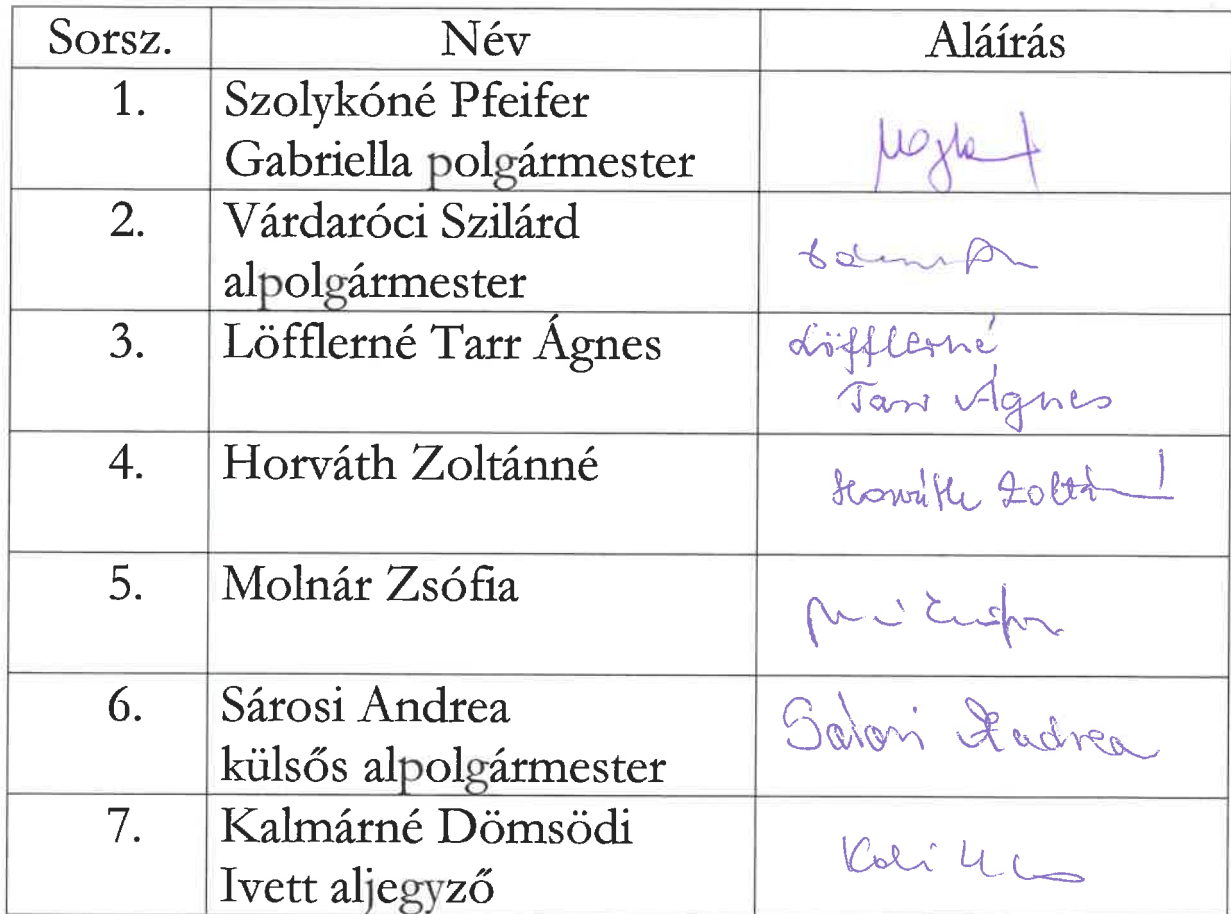 Sorsz. Név Aláírás
1. Szolykóné Pfeifer
Gabriella polgármester
2. Várdaróci Szilárd
alpolgármester
3. Löfflerné Tarr Ágnes Löfflerné
Tarr Ágnes
4. Horváth Zoltánné
Horváth Zoltán
5. Molnár Zsófia
6. Sárosi Andrea Sárosi Andrea
külsős alpolgármester
7. Kalmárné Dömsödi
Ivett aljegyző